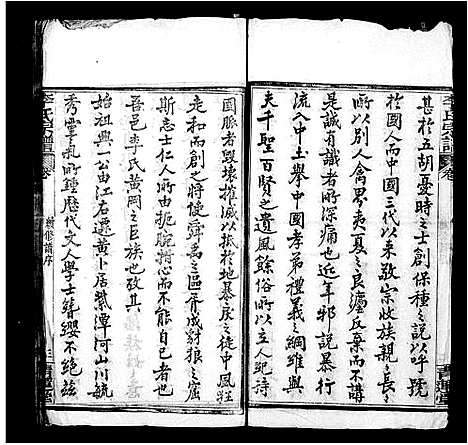 甚於五胡憂時之士創保種之說以呼號
於國人而中國三代以来敬宗收族親長長
所以别人禽界夷夏之良灋反棄而不講
是誠有識者所深痛也近年邪說暴行
流入中土舉中國孝弟禮義之綱維與
夫千聖百賢之遺風餘俗所以立人紀待
國脈者毀壊摧滅以抵於地暴戾之徒中風狂
走和而創之将使舜禹之區胥成豺狼之窟
斯志士仁人所由扼腕摶心而不能自已者也
吾邑李氏黄岡之臣族也攷其
始祖興一公由江右遷黄卜居鰲潭河山川毓
秀靈氣所鍾歷代文人學士簪纓不絶玆
李氏宗譜
卷
續修譜序
三